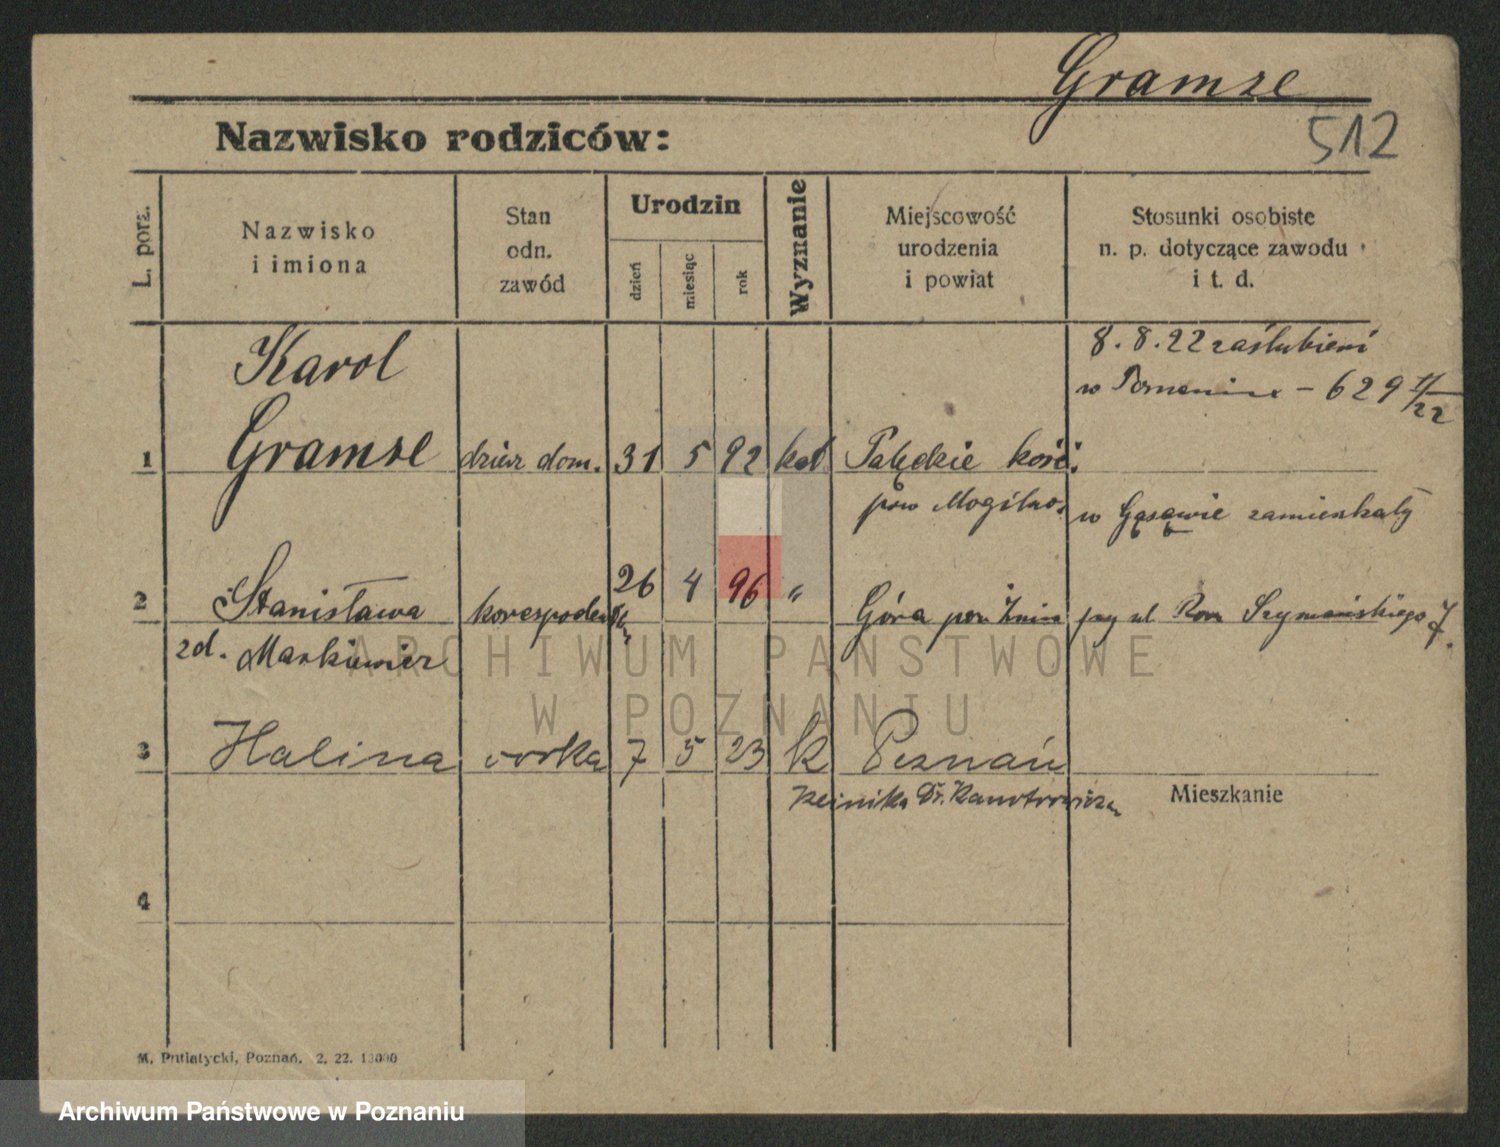 Gramse
512
Nazwisko rodziców:
L. porz.
Nazwisko
i imiona
Stan
odn.
zawód
Urodzin
dzień
miesiąc
rok
Wyznanie
Miejscowość
urodzenia
i powiat
Stosunki osobiste
n. p. dotyczące zawodu
i t. d.
8. 8. 22 zaślubieni
Karol
w - 629
22
1 Gramse dzierż dom. 31 5 92 kat Pałędzie kość.
pow Mogilno. w Gąsawie zamieszkały
2 Stanisława 26 4 96 " Góra pow. Żnin przy ul Rom Szymańskiego 7.
zd. Markiewicz
3 Halina córka 7 5 23 k Poznań
Klinika Dr.
Mieszkanie
4
M. Putiatycki, Poznań. 2. 22. 13000
ARCHIWUM PAŃSTWOWE
W POZNANIU
Archiwum Państwowe w Poznaniu